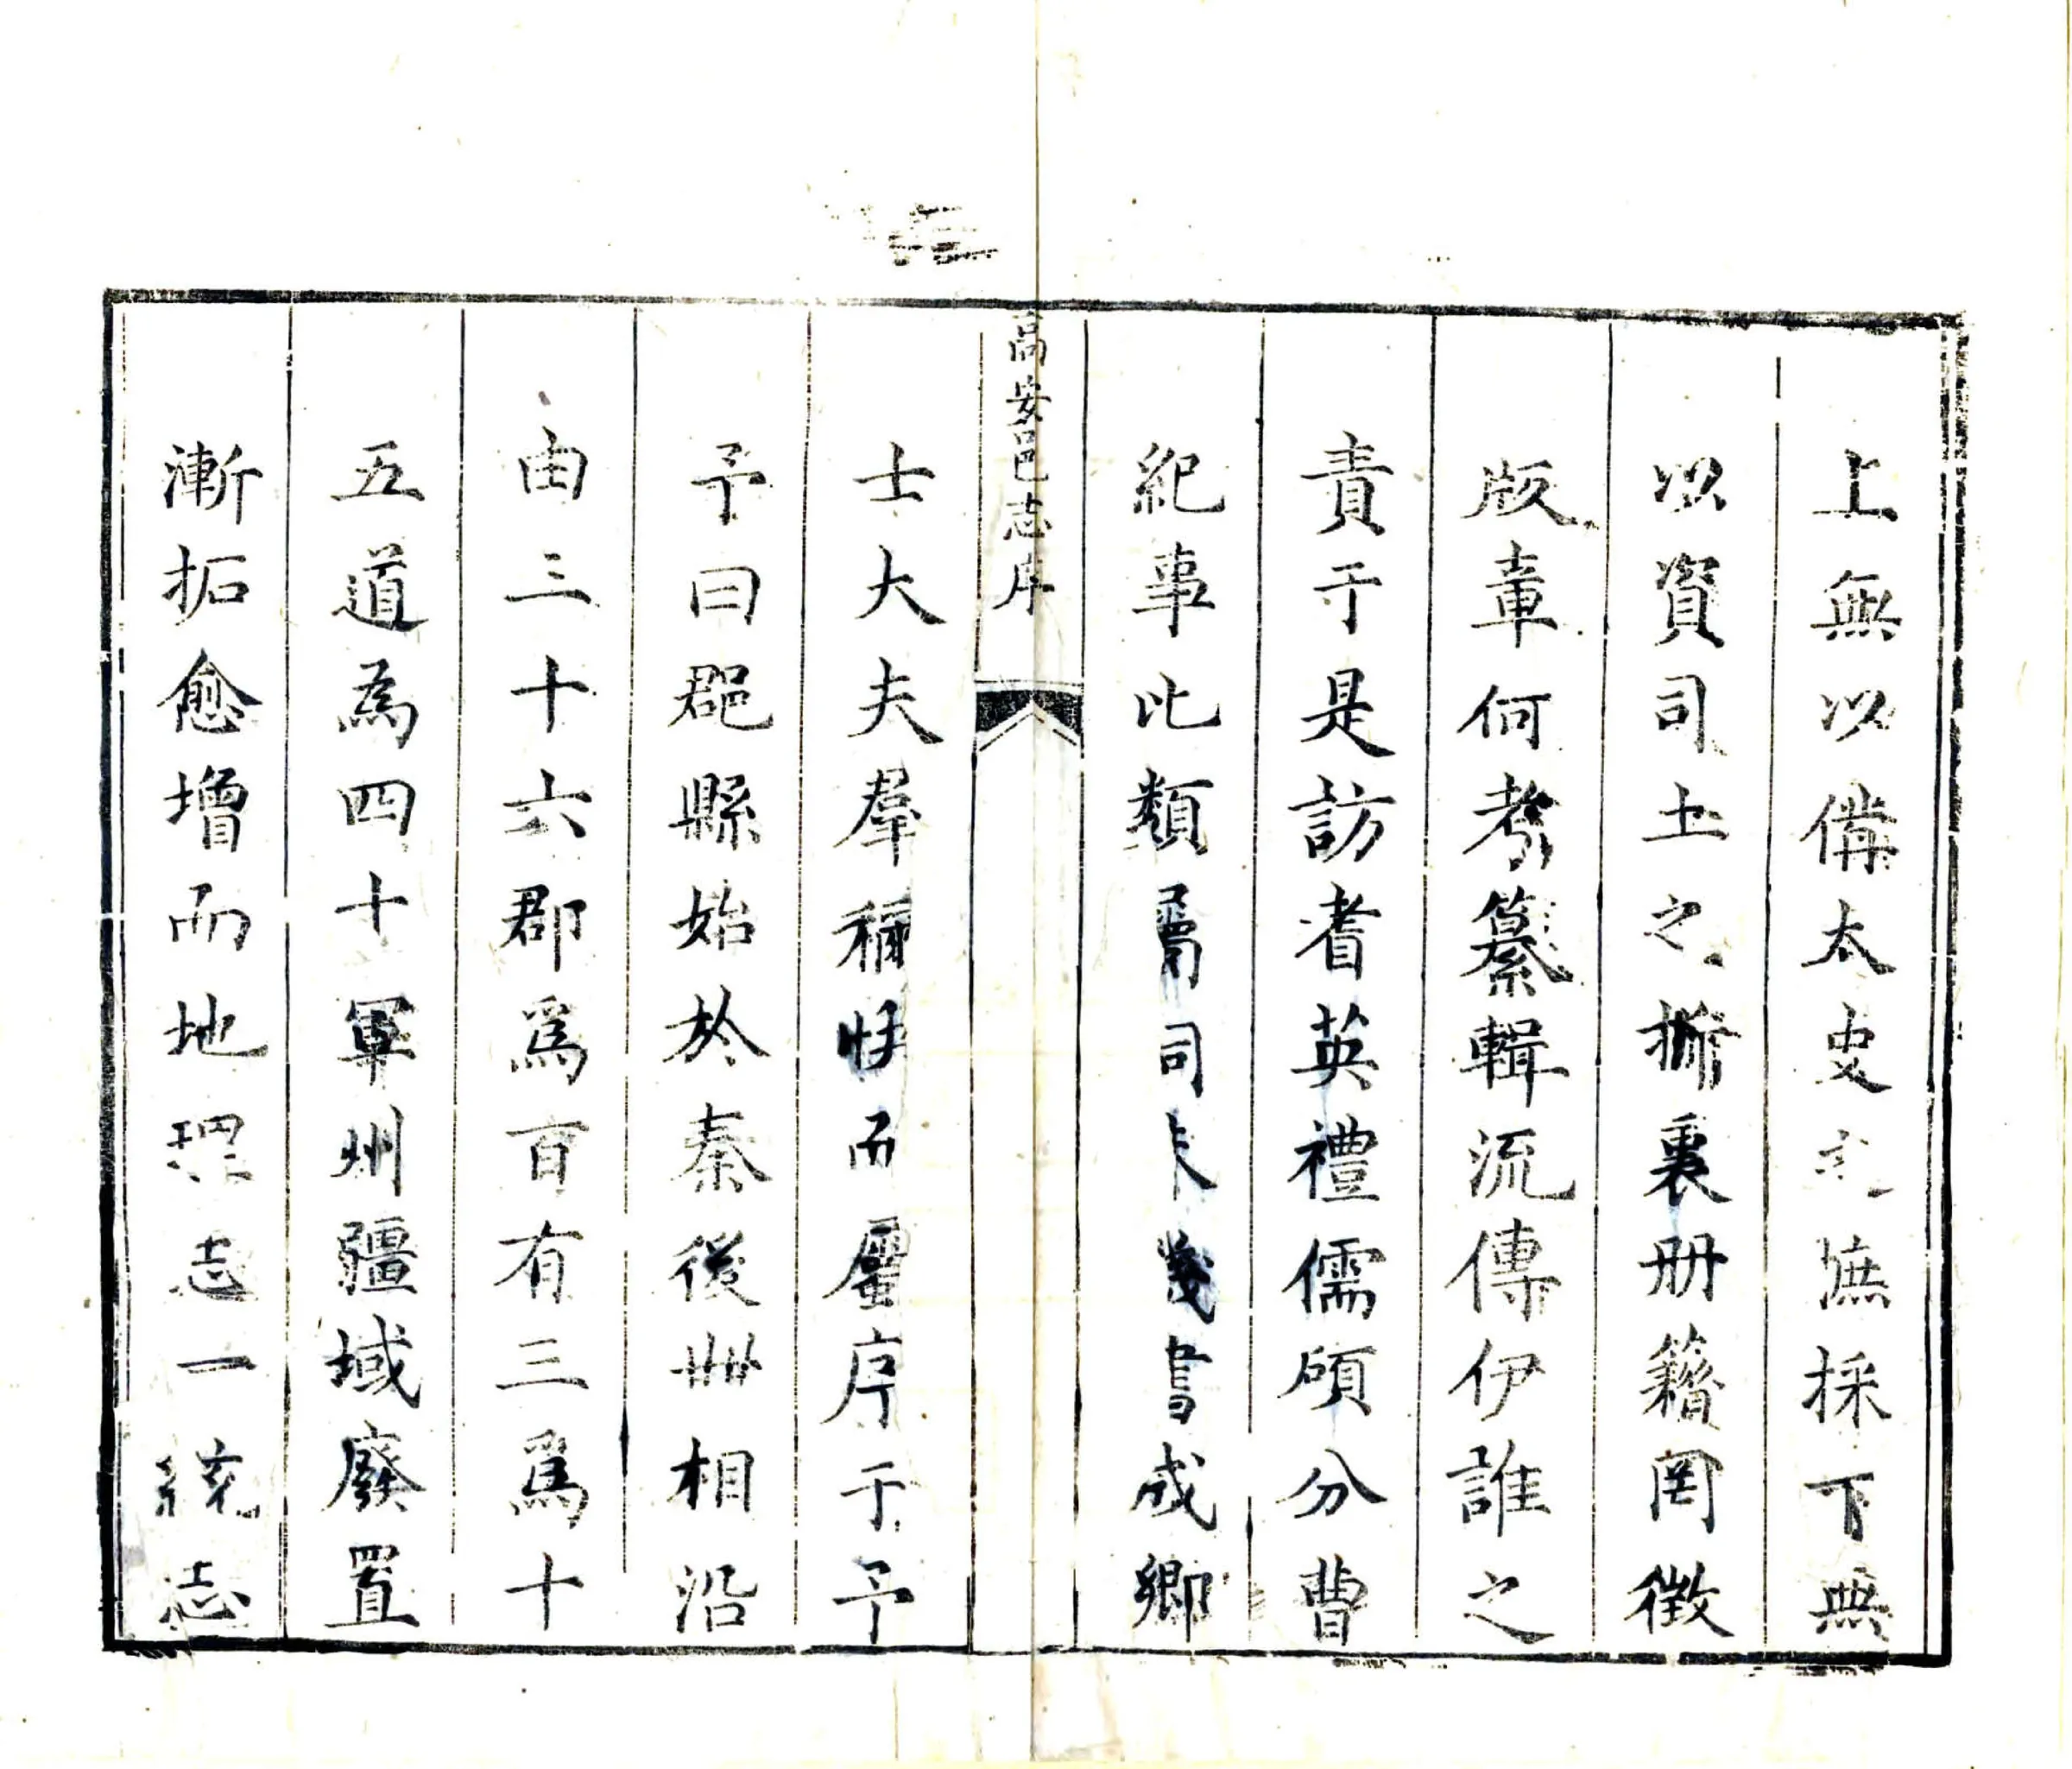 上無以備太史之摭採下無
以資司土之擲裏册籍罔徵
版章何考纂輯流傳伊誰之
責于是訪耆英禮儒碩分曹
紀事比類屬詞書成卿
高安邑志序
士大夫羣稱快而屬序于予
予曰郡縣始於秦後世相沿
由三十六郡爲百有三爲十
五道爲四十軍州疆域廢置
漸拓愈增而地理志一統志